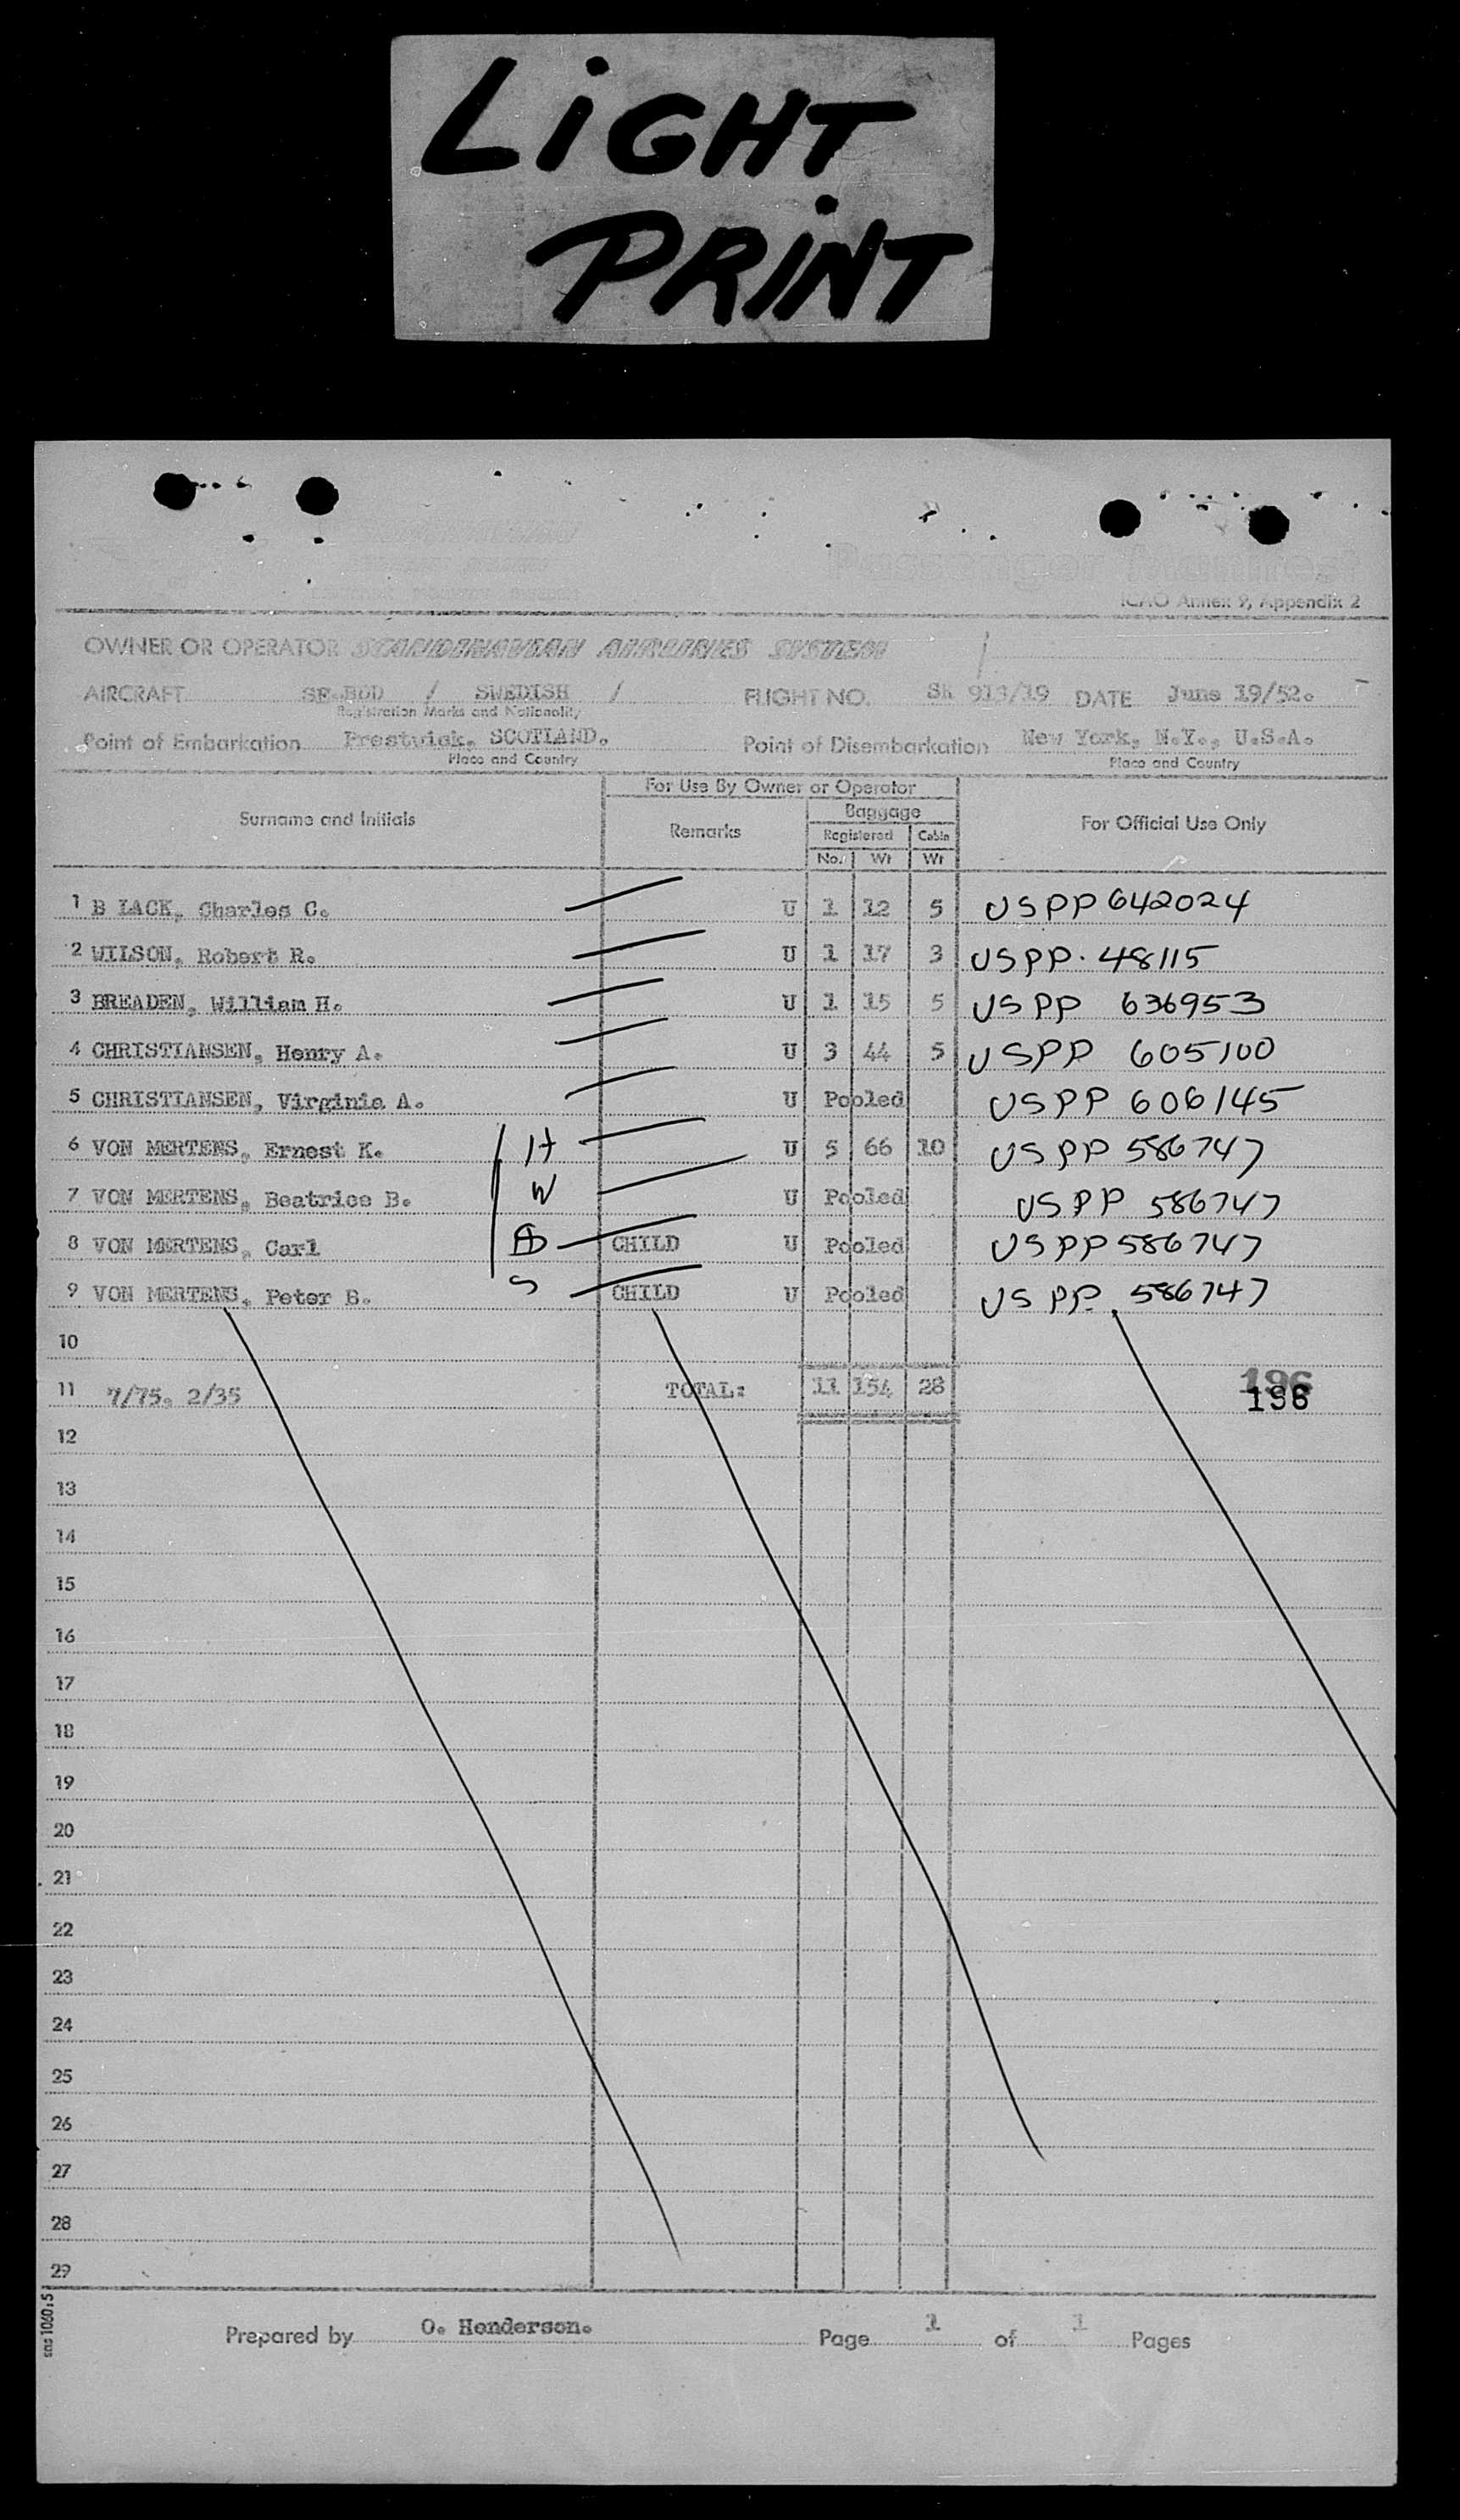 LiGHT
PRiNT
Passenger Manifest
ICAO Annex 9, Appendix 2
OWNER OR OPERATOR SCANDINAVIAN AIRLINES SYSTEM
AIRCRAFT SE-BDD / SWEDISH / FLIGHT NO. SK 913/19 DATE June 19/52.
Registration Marks and Nationality
Point of Embarkation Prestwick, SCOTLAND. Point of Disembarkation New York, N.Y., U.S.A.
Place and Country Place and Country
For Use By Owner or Operator
Surname and Initials Remarks Baggage For Official Use Only
Registered Cabin
No. Wt Wt
1 B LACK, Charles C. U 1 12 5 USPP 642024
2 WILSON, Robert R. U 1 17 3 USPP. 48115
3 BREADEN, William H. U 1 15 5 USPP 636953
4 CHRISTIANSEN, Henry A. U 3 44 5 USPP 605100
5 CHRISTIANSEN, Virginia A. U Pooled USPP 606145
6 VON MERTENS, Ernest K. H U 5 66 10 USPP 586747
7 VON MERTENS, Beatrice B. W U Pooled USPP 586747
8 VON MERTENS, Carl CHILD U Pooled USPP 586747
9 VON MERTENS, Peter B. S CHILD U Pooled USPP. 586747
10
11 7/75. 2/35 TOTAL: 11 154 28 196
196
12
13
14
15
16
17
18
19
20
21
22
23
24
25
26
27
28
29
sas 1060:5
Prepared by O. Henderson. Page 1 of 1 Pages